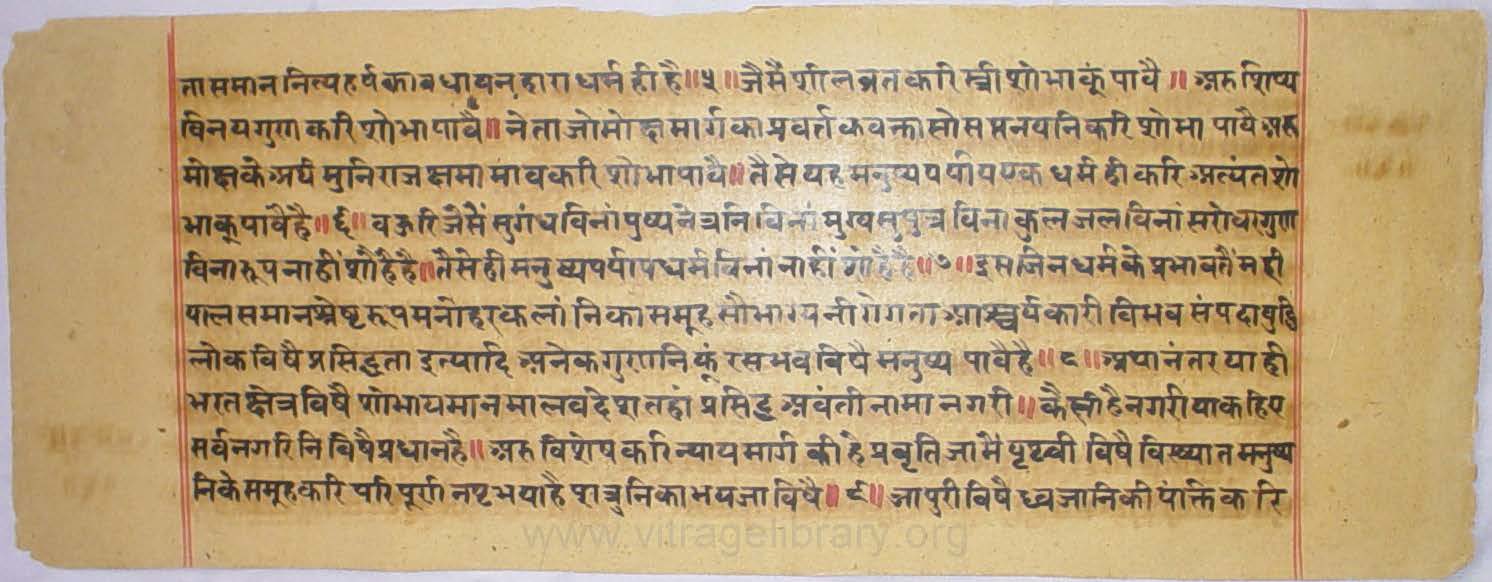 ता समान नित्य हर्ष का बधायन हारा धर्म ही है॥५॥जैसैं शील व्रत करि स्त्री शोभाकूं पावै॥ अरु शिष्य
विनय गुण करि शोभा पावै॥ नेता जो मोक्षमार्ग का प्रवर्तक वक्ता सो सम नय नि करि शोभा पावै अरु
मोक्षके अर्थ मुनिराज क्षमा भाव करि शोभा पावै॥तैसे यह मनुष्य पर्याय एक धर्म ही करि अत्यंत शो
भाकू पावै है॥६॥ बहुरि जैसैं सुगंध विनां पुष्प नेत्रनि विनां मुख सुपुत्र विना कुल जल विनां सरोवर गुण
विना रूप नाहीं शोहै है॥तैसे ही मनुष्य पर्याय धर्म विनां नाहीं शोहै है॥७॥ इस जिन धर्म के प्रभावतैं मही
पाल समान श्रेष्ठ रूप मनोहर कलांनि का समूह सौभाग्य नीरोगता आश्चर्यकारी विभव संपदा बुद्धि
लोक विषै प्रसिद्धता इत्यादि अनेक गुणनिकूं इस भव विषै मनुष्य पावै है॥८॥ अथानंतर याही
भरत क्षेत्र विषै शोभायमान मालव देश तहां प्रसिद्ध अवंती नामा नगरी॥ कैसी है नगरी या कहिए
सर्व नगरिनि विषै प्रधान है॥ अरु विशेष करि न्याय मार्ग की है प्रवृति जामै पृथ्वी विषै विख्यात मनुष्य
निके समूह करि परिपूर्ण नष्ट भया है शत्रुनि का भय जा विषै॥९॥ जा पुरी विषै ध्वजानिकी पंक्ति करि
www.vitragelibrary.org